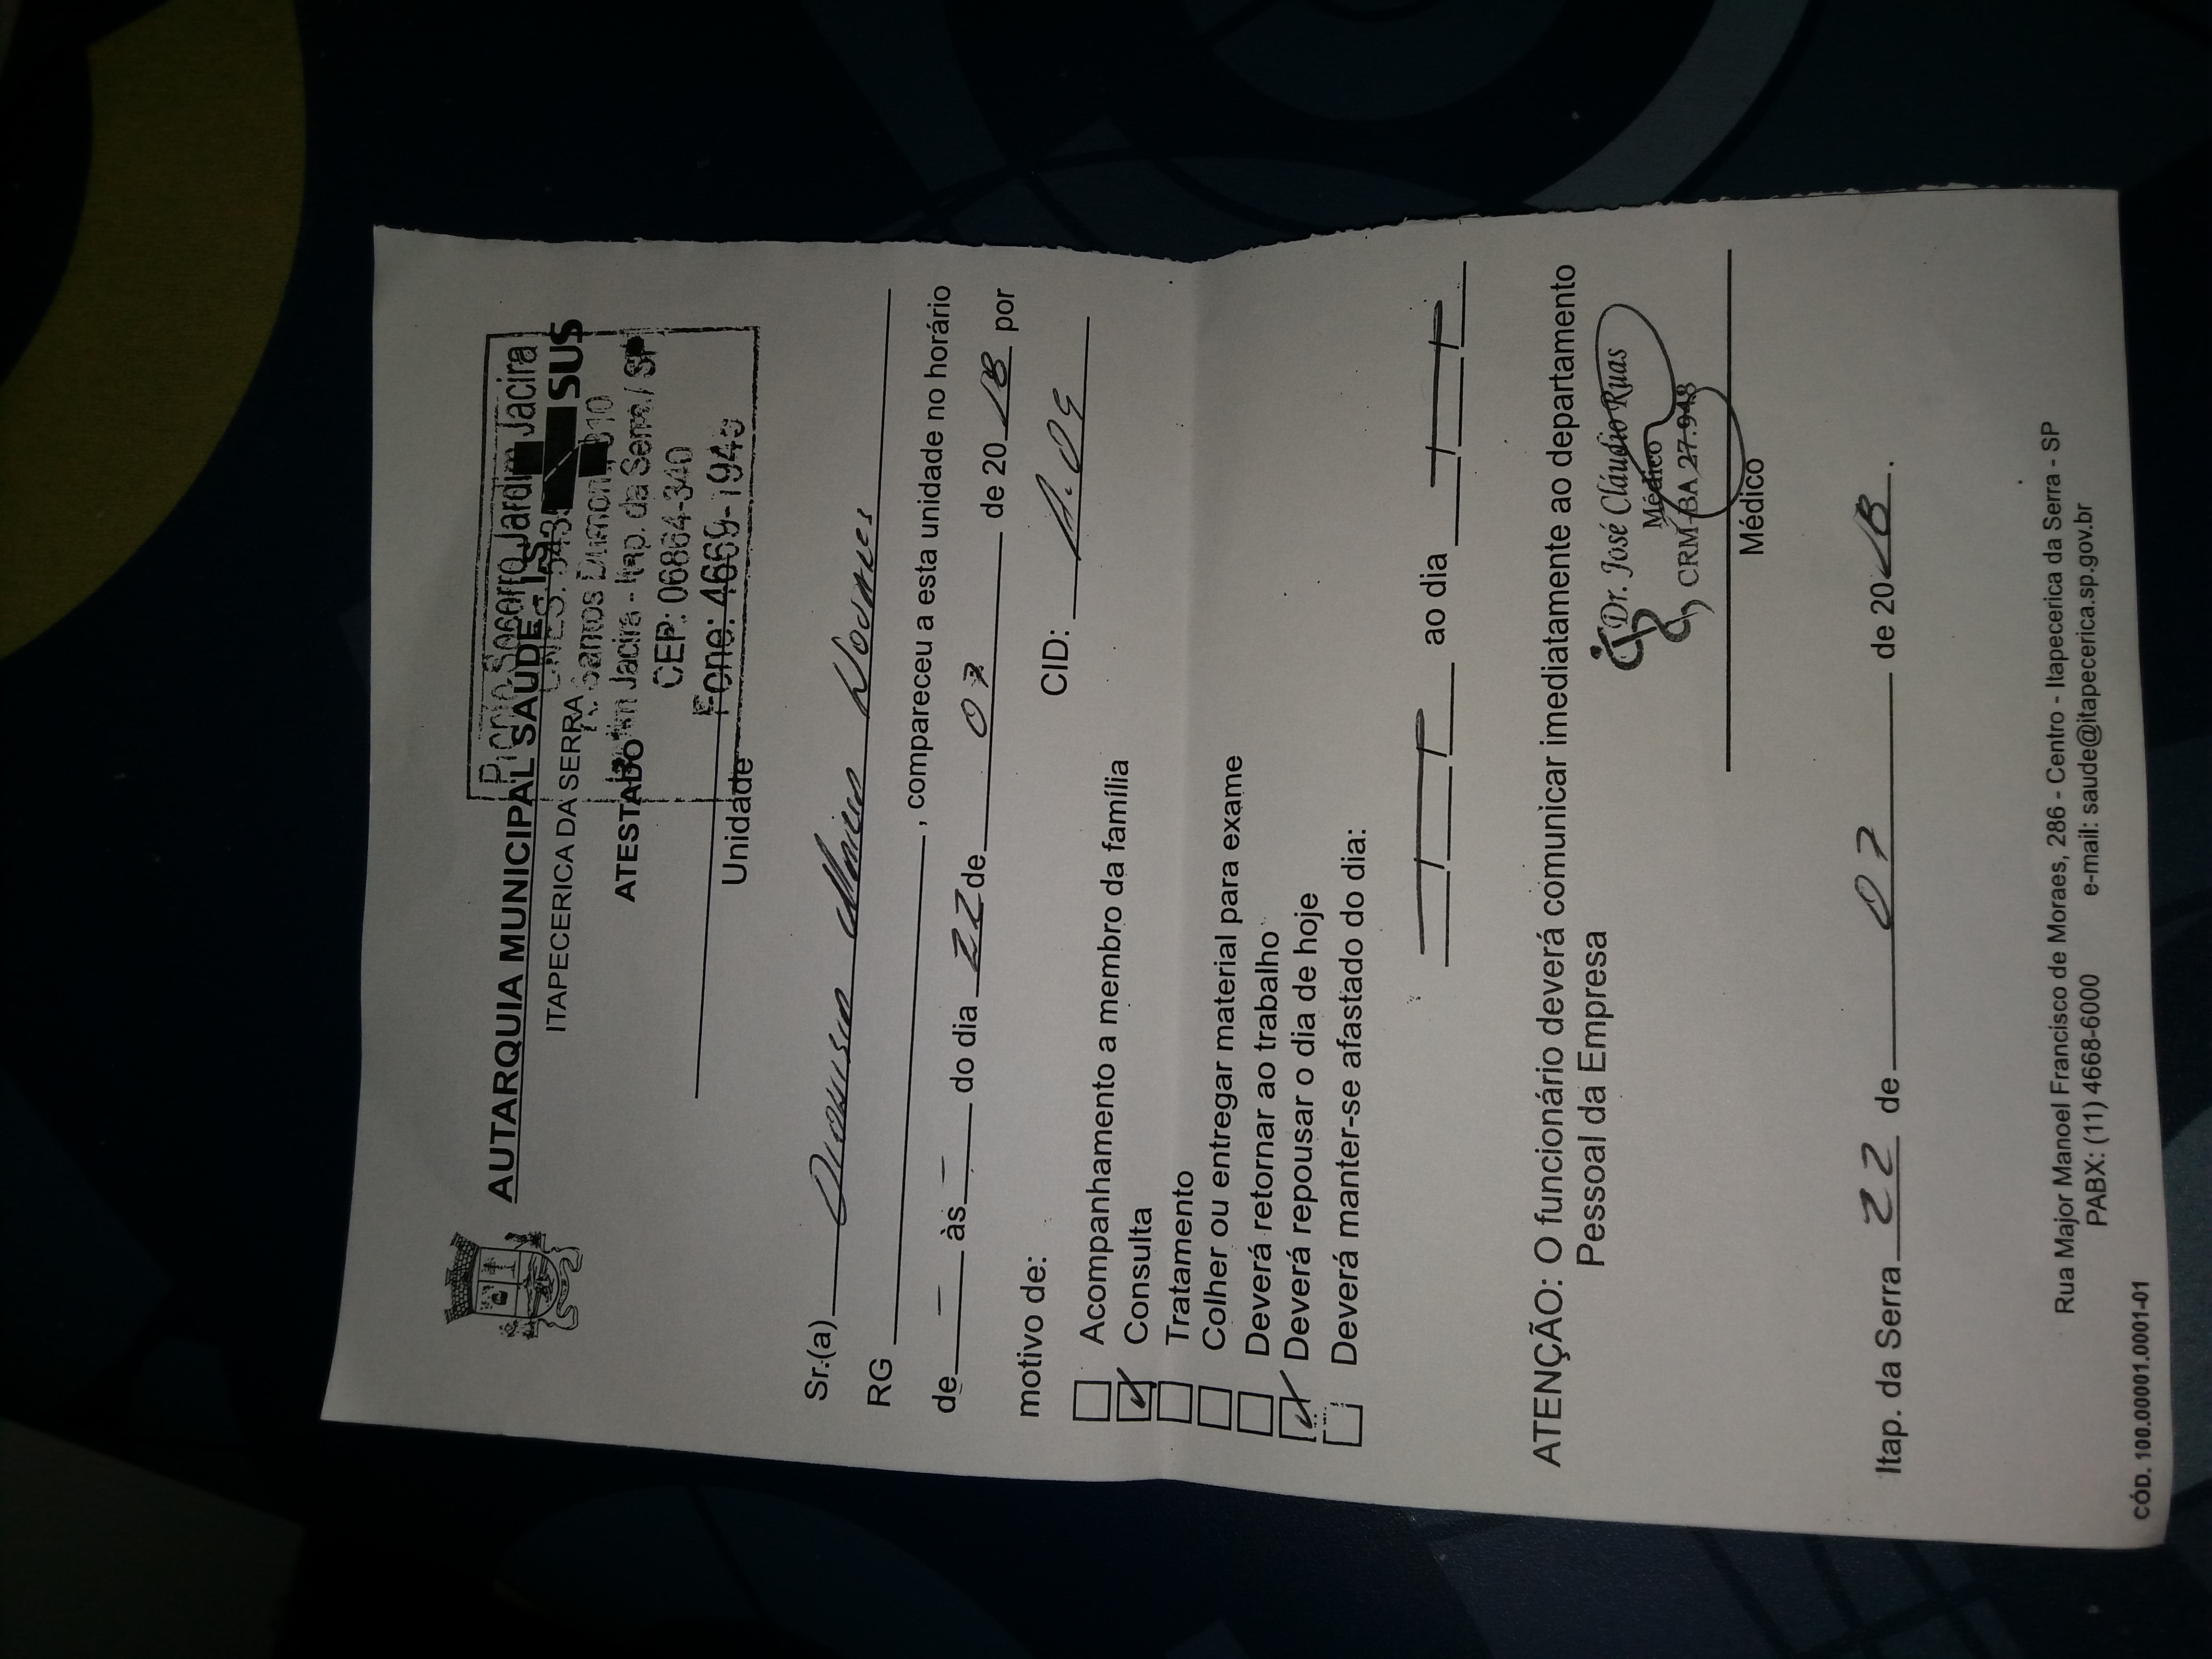 AUTARQUIA MUNICIPAL SAÚDE - I.S.
ITAPECERICA DA SERRA
SUS
ATESTADO
Pronto Socorro Jardim Jacira
CNES: 543
R. Santos Dumont, 310
Jardim Jacira - Itap. da Serra / SP
CEP: 06864-340
Fone: 4669-1945
Unidade
Sr.(a) Dionisia Maria Novaes
RG , compareceu a esta unidade no horário
de - às - do dia 22 de 07 de 2018 por
motivo de:
CID: A.09
Acompanhamento a membro da família
Consulta
Tratamento
Colher ou entregar material para exame
Deverá retornar ao trabalho
Deverá repousar o dia de hoje
Deverá manter-se afastado do dia:
/ / ao dia / /
ATENÇÃO: O funcionário deverá comunicar imediatamente ao departamento
Pessoal da Empresa
Dr. José Cláudio Ruas
Médico
CRM-BA 27.948
Médico
Itap. da Serra 22 de 07 de 2018.
Rua Major Manoel Francisco de Moraes, 286 - Centro - Itapecerica da Serra - SP
PABX: (11) 4668-6000 e-mail: saude@itapecerica.sp.gov.br
CÓD. 100.00001.0001-01